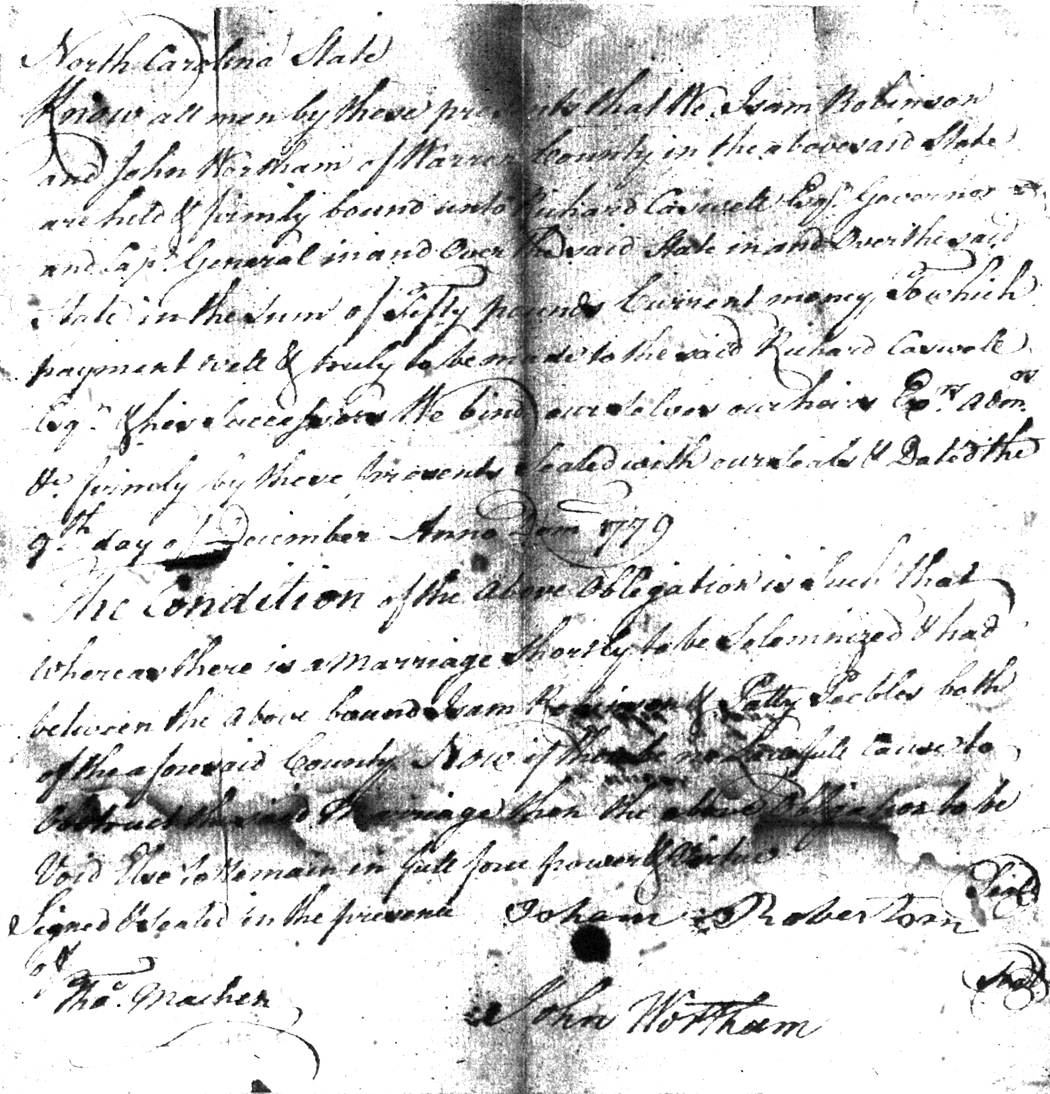 North Carolina State
Know all men by these presents that We Isam Robinson
and John Wortham of Warren County in the abovesaid State
are held & firmly bound unto Richard Caswell Esqr. Governor
and Capt. General in and Over the said State in and Over the said
State in the Sum of Fifty pounds Current money To which
payment well & truly to be made to the said Richard Caswell
Esqr. & his Successors We bind ourselves our heirs Exrs. admrs
&c. firmly by these presents Sealed with our Seals & Dated the
9th day of December Anno Dom 1779
The Condition of the above Obligation is Such that
whereas there is a marriage Shortly to be Solemnized & had
between the above bound Isam Robinson & Patty Peebles both
of the aforesaid County Now if there be no Lawfull Cause to
Obstruct the said Marriage then the above Obligation to be
Void Else to Remain in full force power & Virtue
Signed & sealed in the presence Isham Roberson Seal
of
Thos. Machen John Wortham Seal